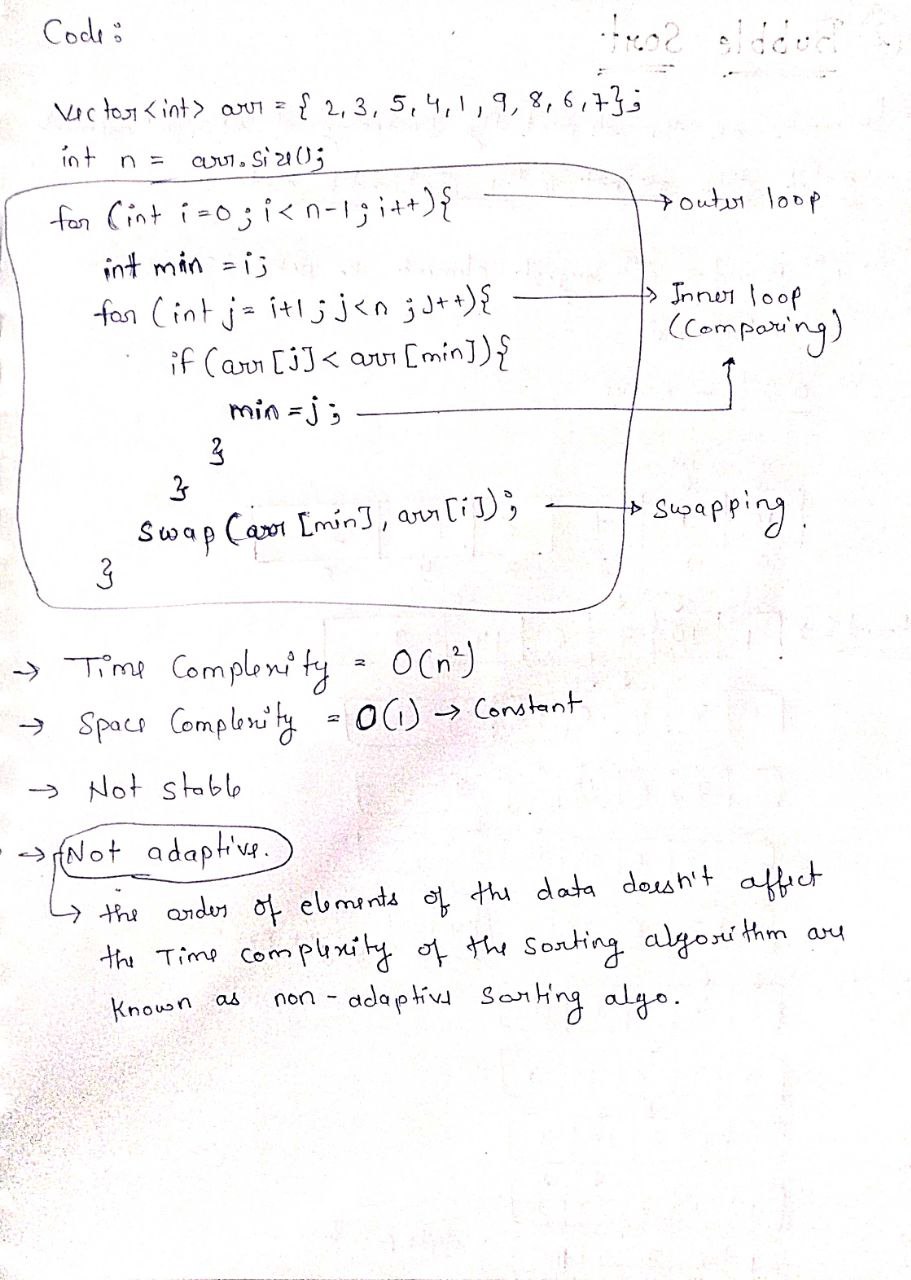 Code:
Bubble Sort
vector<int> arr = { 2, 3, 5, 4, 1, 9, 8, 6, 7};
int n = arr.size();
for (int i=0; i<n-1; i++){ → outer loop
int min = i;
for (int j = i+1; j<n; j++){ → Inner loop
(Comparing)
if (arr[j] < arr[min]){
min = j;
}
}
swap (arr [min], arr[i]); → swapping
}
→ Time Complexity = O(n²)
→ Space Complexity = O(1) → Constant
→ Not stable
→ Not adaptive.
↳ the order of elements of the data doesn't affect
the Time complexity of the sorting algorithm are
known as non-adaptive sorting algo.